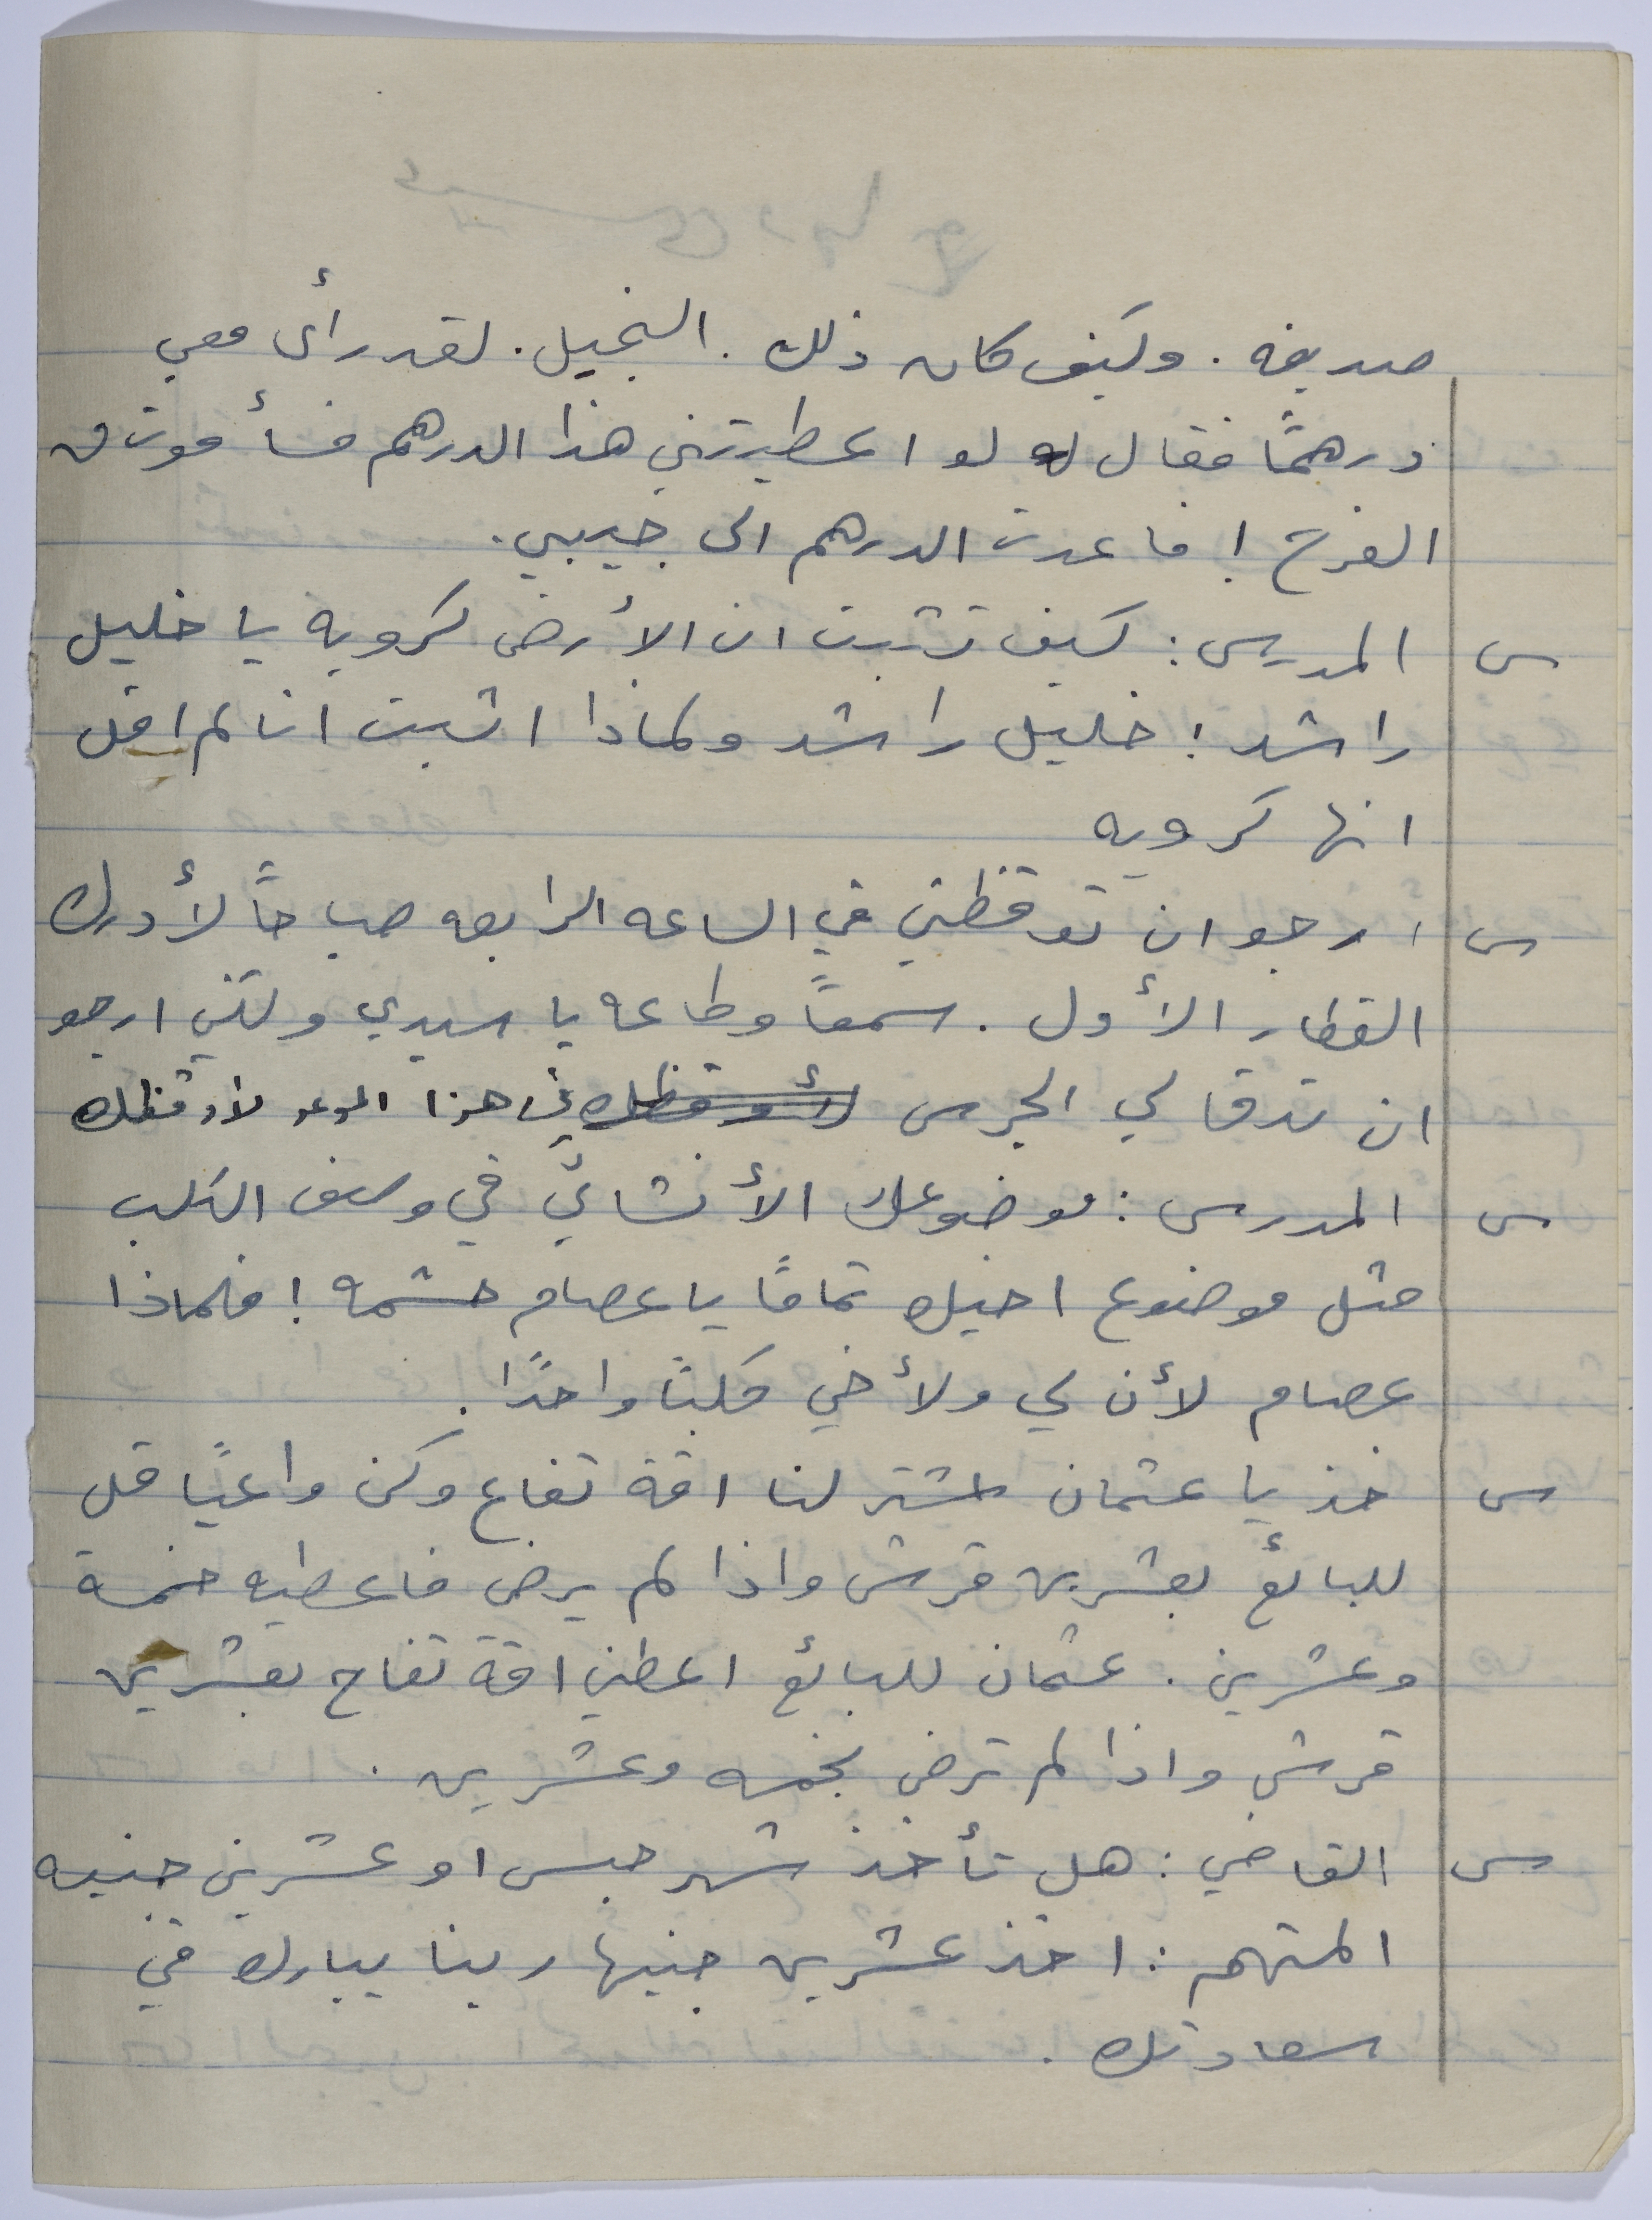 صديقه . وكيف كان ذلك . البخيل . لقد رأى معي
درهمًا فقال له لو اعطيتني هذا الدرهم فسأموت من
الفرح ! فاعدت الدرهم الى جيبي .
س المدرس : كيف تثبت ان الأرض كرويه يا خليل
راشد ! خليل راشد ولماذا اثبت انا لم اقل
انها كرويه
س ارجو ان توقظني في الساعه الرابعه صباحًا لأدرك
القطار الأول . سمعًا وطاعه يا سيدي ولكني ارجو
ان تدق لي الجرس لأوقظك في هذا الوعد لأوقظك
س المدرس : موضوعك الأنشائي في وصف الكلب
مثل موضوع اخيك تمامًا يا عصام حشمه ! فلماذا
عصام لأن لي ولأخي كلبًا واحدًا .
س خذ يا عثمان اشتر لنا اقة تفاع وكن واعيًا قل
للبائع بعشرين قرش واذا لم يرض فاعطيه خمسة
وعشرين . عثمان للبائع اعطني اقة تفاح بعشرين
قرش واذا لم ترض بخمسه وعشرين .
س القاضي : هل تأخذ شهر حبس او عشرين جنيه
المتهم : اخذ عشرين جنيها ربنا يبارك في
سعادتك .